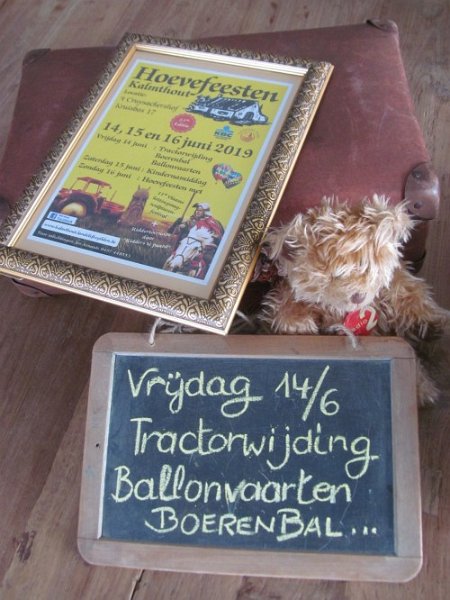 Hoevefeesten
Kalmthout
Locatie:
't Cruysachershof
Kruisbos 17
14, 15 en 16 juni 2019
Vrijdag 14 juni : Tractorwijding
Boerenbal
Ballonvaarten
Zaterdag 15 juni : Kindernamiddag
Zondag 16 juni : Hoevefeesten met
Vrijdag 14/6
Tractorwijding
Ballonvaarten
BOERENBAL...